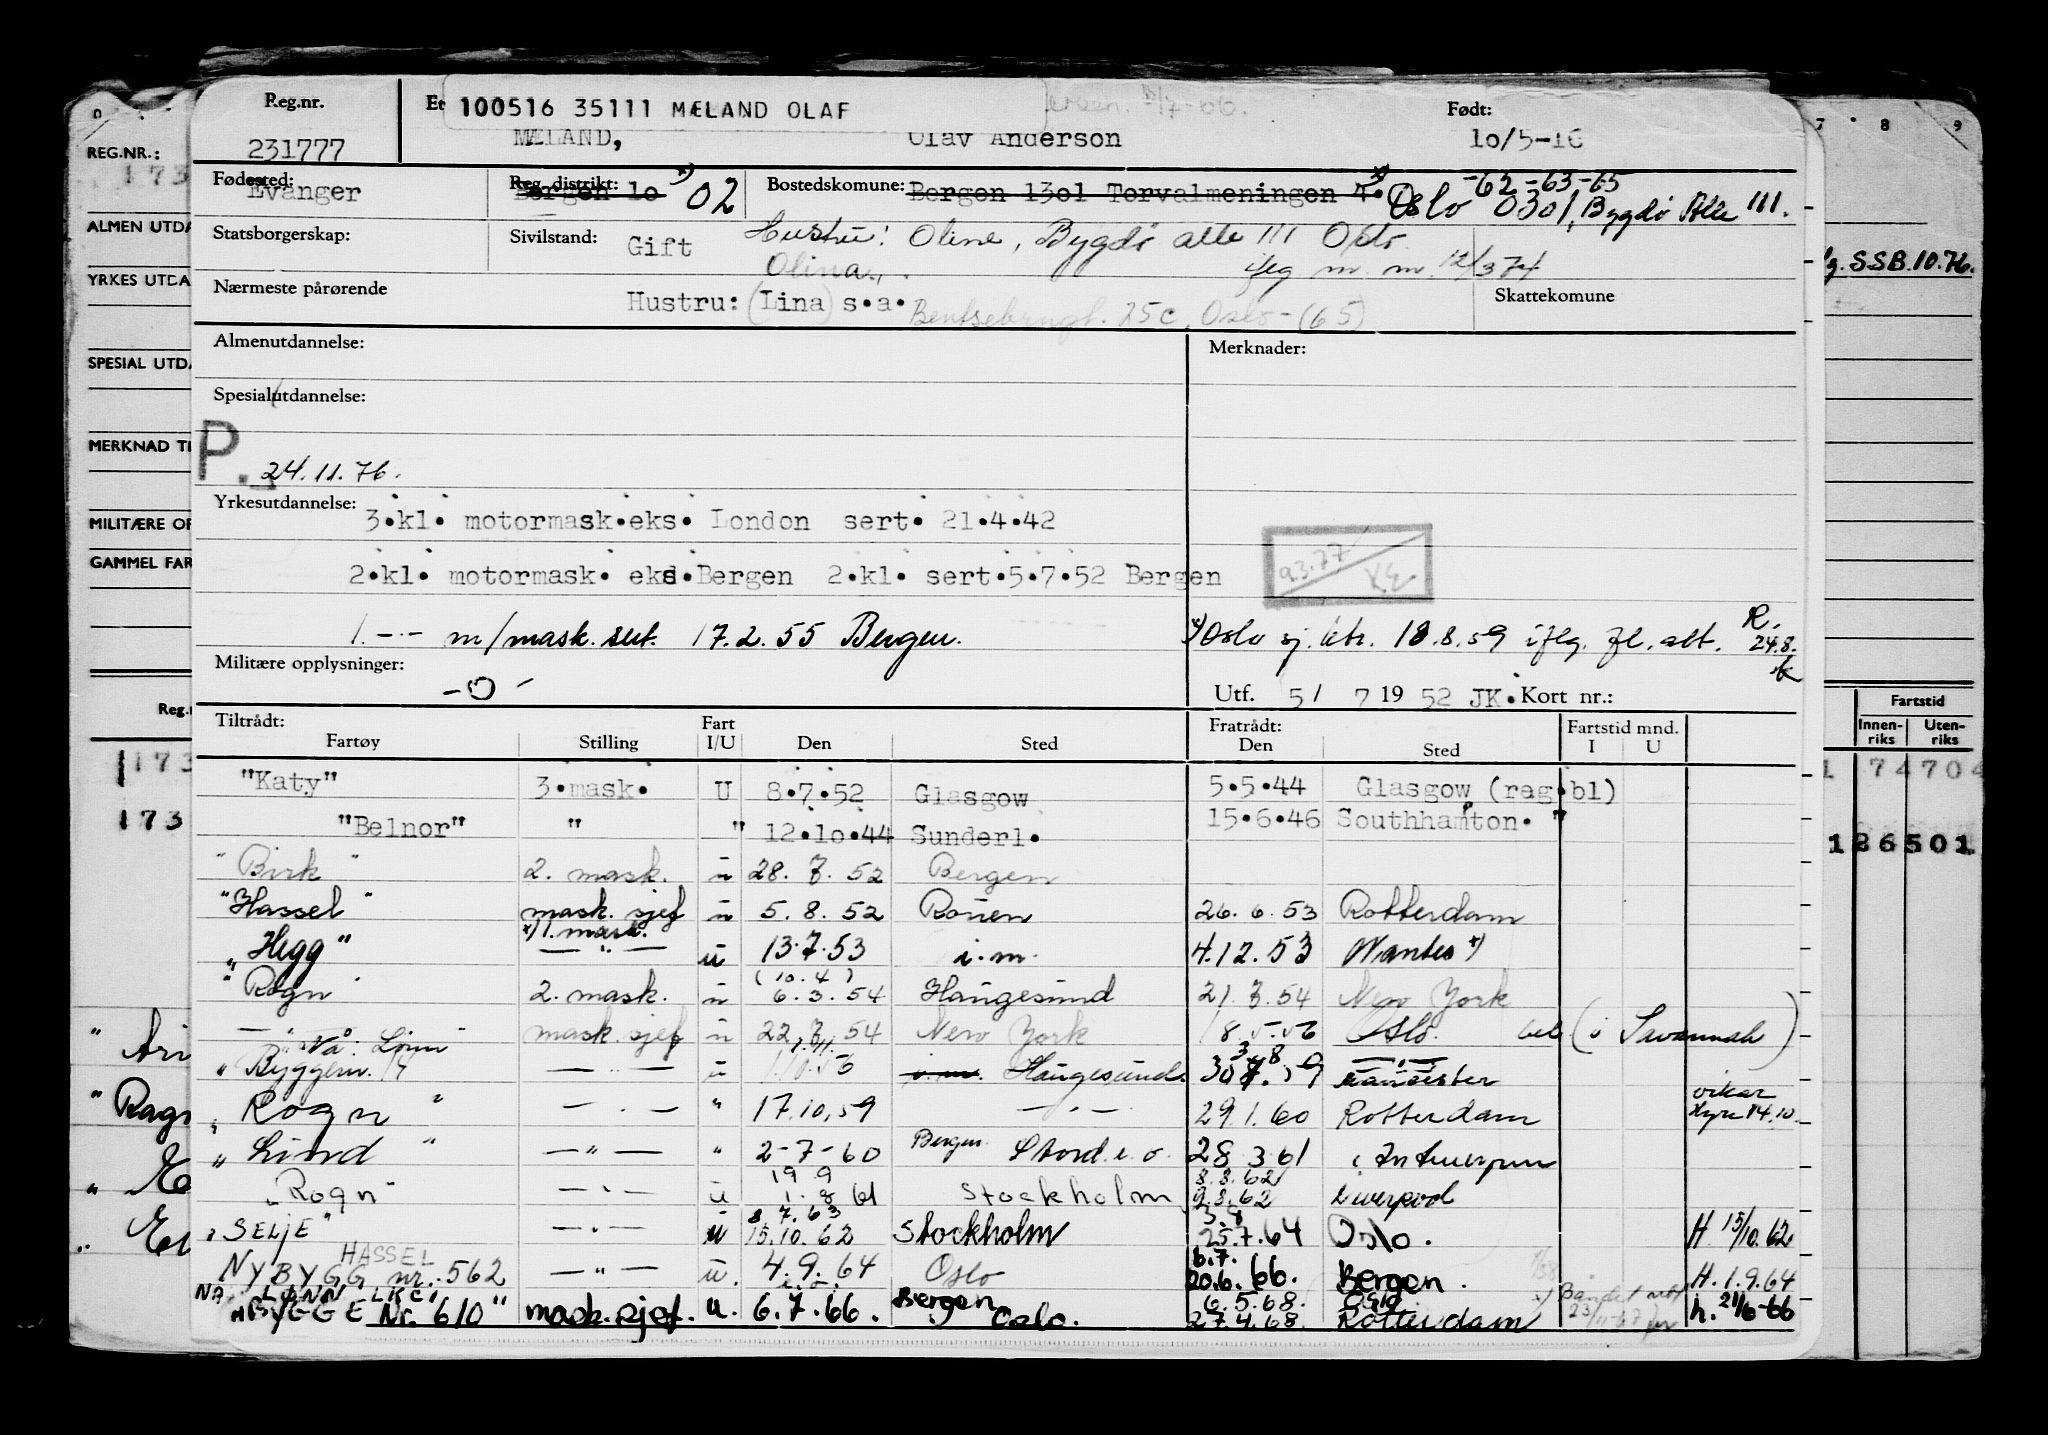 Reg.nr. 100516 35111 MÆLAND OLAF Født:
231777 MÆLAND, Olav Anderson 10/5-16
REG.NR.:
173
Fødested: Evanger Reg. distrikt: Bergen lo x) 02 Bostedskomune: Bergen 13ol Torvalmeningen 4. x) Oslo 0301, Bygdø Alle 111.
-62-63-65
ALMEN UTDA
Statsborgerskap: Sivilstand: Gift Hustru: Oline, Bygdø alle 111 Oslo
Olina. iflg m.m. 12/3 74
lg. S.S.B. 10.76.
YRKES UTDA
Nærmeste pårørende Hustru: (Lina) s.a. Bentsebrugt. 25c, Oslo - (65) Skattekomune
Almenutdannelse: Merknader:
SPESIAL UTDA
Spesialutdannelse:
MERKNAD TI
P. 24.11.76.
Yrkesutdannelse: 3.kl. motormask.eks. London sert. 21.4.42
MILITÆRE OP
GAMMEL FAR
9.3.77 KE
2.kl. motormask. eks.Bergen 2.kl. sert.5.7.52 Bergen
1. -·- m/mask. sert. 17.2.55 Bergen. x) Oslo sj. ktr. 18.8.59 iflg. fl. alt. R. 24.8.
Militære opplysninger: -O-
Utf. 5/ 7 19 52 JK. Kort nr.:
Tiltrådt: Fartøy Stilling Fart I/U Den Sted Fratrådt: Den Sted Fartstid mnd. I U
Fartstid Innen-riks Uten-riks
"Katy" 3.mask. U 8.7.52 Glasgow 5.5.44 Glasgow (reg.bl)
174704
"Belnor" " " 12.lo.44 Sunderl. 15.6.46 Southhamton. "
173 186501
"Birk" 2. mask. u 28. 7. 52 Bergen
"Hassel" mask. sjef u 5. 8. 52 Rouen 26. 6. 53 Rotterdam
x) 1. mask.
"Hegg" — " — u 13.7.53 i.m. 4.12.53 Nantes x)
(10. 4)
"Rogn" 2. mask. u 6. 3. 54 Haugesund 21. 7. 54 New York
— " — Nå: Lønn mask. sjef u 22. 7. 54 New York 18.5.56 Oslo. (i Savannah)
"Byggenr. 14 — " — u 1.10.56 i.m. Haugesund. 30.7.59 — " —
"Rogn" — " — " 17.10.59 — " — 29.1.60 Rotterdam vikar hyre 14.10.
"Lind" — " — " 2-7-60 Bergen. Stord i. o. 28 3 61 i Antwerpen
19 9
"Rogn" — " — u 1. 8 61 Stockholm 9.3.62 Liverpool
8.3.62
8 7.63
"SELJE" — " — u 15.10.62 Stockholm 25.7.64 Oslo. H. 15/10.62
3.8
HASSEL
NYBYGG nr. 562 — " — u. 4.9.64 Oslo 20.6.66. Bergen. H. 1.9.64
6.7.
NÅ LØNN LKCI
"BYGGE Nr. 610" mask.sjef. u. 6.7.66. Bergen Oslo. 27.4.68. Rotterdam h. 21/6-66
6.5.68. Oslo
23/11-67